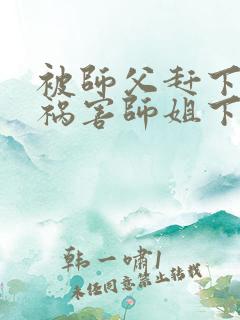 被師父赶下
祸害師姐下
韩一嘯1
未经同意禁止转载